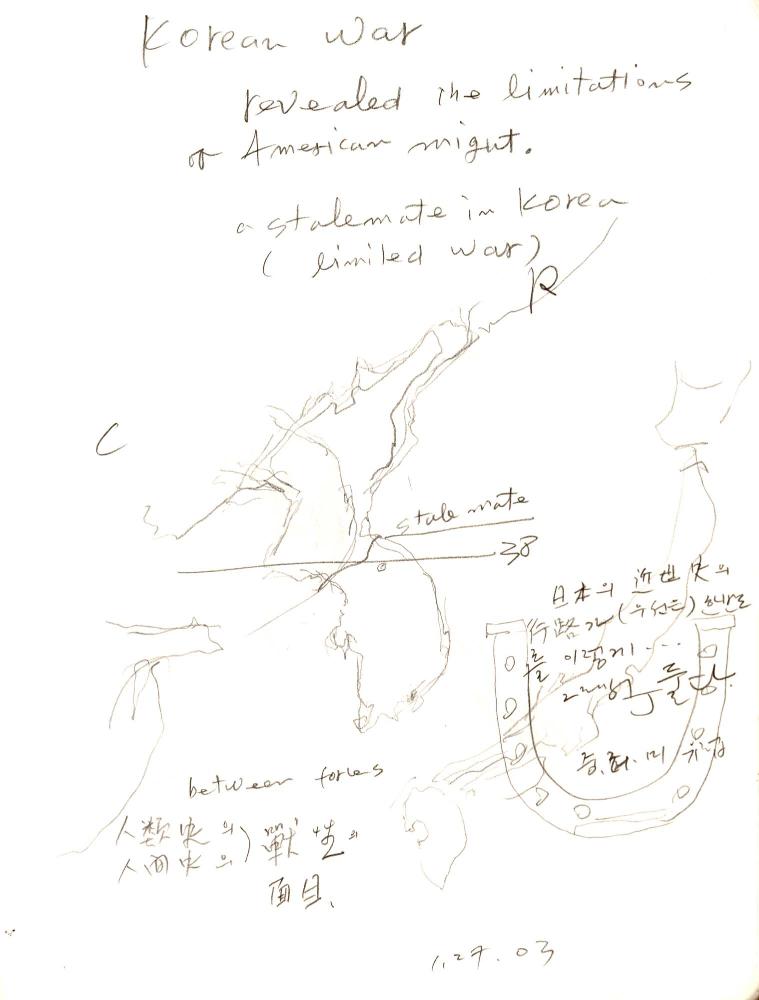 Korean war
revealed the limitations
of American might.
a stalemate in Korea
( limited war )
R
C
stalemate
38
日本의 近世史의
行路가 (우선은) 한반도
를 이렇게 ...
between forces
人類史의
人間史의 ) 戰生의
面目.
1.27.03